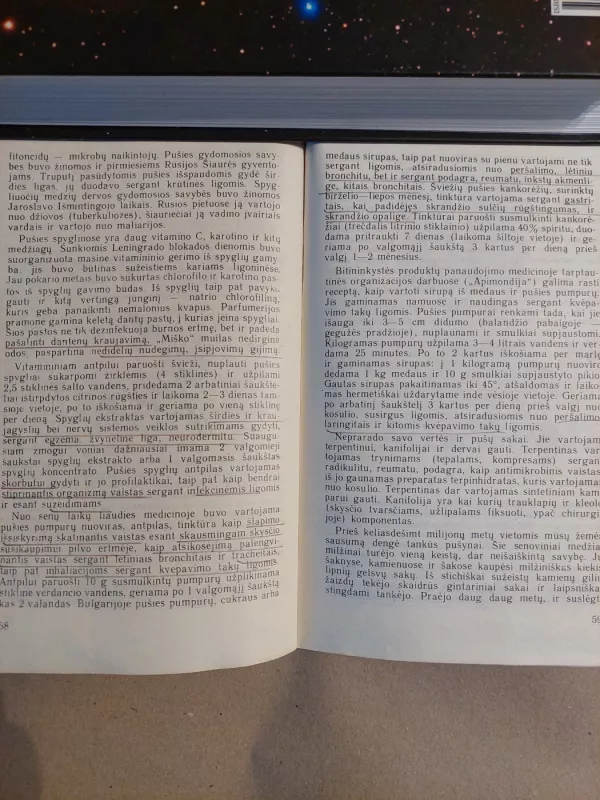 fitoncidų — mikrobų naikintojų. Pušies gydomosios savy-
bės buvo žinomos ir pirmiesiems Rusijos Šiaurės gyvento-
jams. Truputį pasūdytomis pušies išspaudomis gydė šir-
dies ligas, jų duodavo sergant krūtinės ligomis. Spyg-
liuočių medžių dervos gydomosios savybės buvo žinomos
Jaroslavo Išmintingojo laikais. Rusios pietuose ją vartojo
nuo džiovos (tuberkuliozės), šiauriečiai ją vadino įvairiais
vardais ir vartojo nuo maliarijos.
Pušies spygliuose yra daug vitamino C, karotino ir kitų
medžiagų. Sunkiomis Leningrado blokados dienomis buvo
suorganizuota masinė vitamininio gėrimo iš spyglių gamy-
ba, jis buvo būtinas sužeistiems kariams ligoninėse.
Jau pokario metais buvo sukurtas chlorofilo ir karotino pas-
tos iš spyglių gavimo būdas. Iš spyglių taip pat pavyko
gauti ir kitą vertingą junginį — natrio chlorofiliną,
kuris geba panaikinti nemalonius kvapus. Parfumerijos
pramonė gamina keletą dantų pastų, į kurias įeina spygliai.
Šios pastos ne tik dezinfekuoja burnos ertmę, bet ir padeda
pašalinti dantenų kraujavimą. „Miško" muilas nedirgina
odos, paspartina nedidelių nudegimų, įsipjovimų gijimą.
Vitamininiam antpilui paruošti švieži, nuplauti pušies
spygliai sukarpomi žirklėmis (4 stiklinės) ir užpilami
2,5 stiklinės šalto vandens, pridedama 2 arbatiniai šaukšte-
liai ištirpdytos citrinos rūgšties ir laikoma 2—3 dienas tam-
sioje vietoje, po to iškošiama ir geriama po vieną stiklinę
per dieną. Spyglių ekstraktas vartojamas širdies ir krau-
jagyslių bei nervų sistemos veiklos sutrikimams gydyti,
sergant egzema, žvyneline liga, neurodermitu. Suaugu-
siam žmogui voniai dažniausiai imama 2 valgomieji
šaukštai spyglių ekstrakto arba 1 valgomasis šaukštas
spyglių koncentrato. Pušies spyglių antpilas vartojamas
skorbutui gydyti ir jo profilaktikai, taip pat kaip bendrai
stiprinantis organizmą vaistas sergant infekcinėmis ligomis
ir esant sužeidimams.
Nuo senų laikų liaudies medicinoje buvo vartojama
pušies pumpurų nuoviras, antpilas, tinktūra kaip šlapimo
išsiskyrimą skatinantis vaistas esant skausmingam skysčio
susikaupimui pilvo ertmėje, kaip atsikosėjimą palengvi-
nantis vaistas sergant lėtiniais bronchitais ir tracheitais,
taip pat inhaliacijoms sergant kvėpavimo takų ligomis.
Antpilui paruošti 10 g susmulkintų pumpurų užplikinama
stikline verdančio vandens, geriama po 1 valgomąjį šaukštą
kas 2 valandas. Bulgarijoje pušies pumpurų, cukraus arba
58
medaus sirupas, taip pat nuoviras su pienu vartojami ne tik
sergant ligomis, atsiradusiomis nuo peršalimo, lėtiniu
bronchitu, bet ir sergant podagra, reumatu, inkstų akmenli-
ge, kitais bronchitais. Šviežių pušies kankorėžių, surinktų
birželio—liepos mėnesį, tinktūra vartojama sergant gastri-
tais, kai padidėjęs skrandžio sulčių rūgštingumas, ir
skrandžio opalige. Tinktūrai paruošti susmulkinti kankorė-
žiai (trečdalis litrinio stiklainio) užpilama 40% spiritu, duo-
dama pritraukti 7 dienas (laikoma šiltoje vietoje) ir ge-
riama po valgomąjį šaukštą 3 kartus per dieną prieš
valgį 1—2 mėnesius.
Bitininkystės produktų panaudojimo medicinoje tarptau-
tinės organizacijos darbuose („Apimondija") galima rasti
receptą, kaip vartoti sirupą iš medaus ir pušies pumpurų.
Jis gaminamas namuose ir naudingas sergant kvėpa-
vimo takų ligomis. Pušies pumpurai renkami tada, kai jie
išauga iki 3—5 cm didumo (balandžio pabaigoje —
gegužės pradžioje), nuplaunami ir smulkiai supjaustomi.
Kilogramas pumpurų užpilama 3—4 litrais vandens ir ver-
dama 25 minutes. Po to 2 kartus iškošiama per marlę
ir gaminamas sirupas: į 1 kilogramą pumpurų nuoviro
dedama 1 kg medaus ir 10 g smulkiai supjaustyto pikio.
Gautas sirupas pakaitinamas iki 45°, atšaldomas ir laiko-
mas hermetiškai uždarytame inde vėsioje vietoje. Geriama
po arbatinį šaukštelį 3 kartus per dieną prieš valgį nuo
kosulio, susirgus ligomis, atsiradusiomis nuo peršalimo,
laringitais ir kitomis kvėpavimo takų ligomis.
Neprarado savo vertės ir pušų sakai. Jie vartojami
terpentinui, kanifolijai ir dervai gauti. Terpentinas var-
tojamas trynimams (tepalams, kompresams) sergant
radikulitu, reumatu, podagra, kaip antimikrobinis vaistas,
iš jo gaunamas preparatas terpinhidratas, kuris vartojamas
nuo kosulio. Terpentinas dar vartojamas sintetiniam kam-
parui gauti. Kanifolija yra kai kurių trauklapių ir kleolo
(skysčio tvarsčiams, užlipalams fiksuoti, ypač chirurgi-
joje) komponentas.
Prieš keliasdešimt milijonų metų vietomis mūsų žemės
sausumą dengė tankūs pušynai. Šie senoviniai medžiai
milžinai turėjo vieną gerą, dar neišaiškintą savybę. Jų
šaknyse, kamienuose ir šakose kaupėsi milžiniškas kiekis
lipnių gelsvų sakų. Iš stichiškai sužeistų kamienų gilių
žaizdų tekėjo skaidrūs gintariniai sakai ir laipsniškai
stingdami tankėjo. Praėjo daug daug metų, ir suslėgti
59